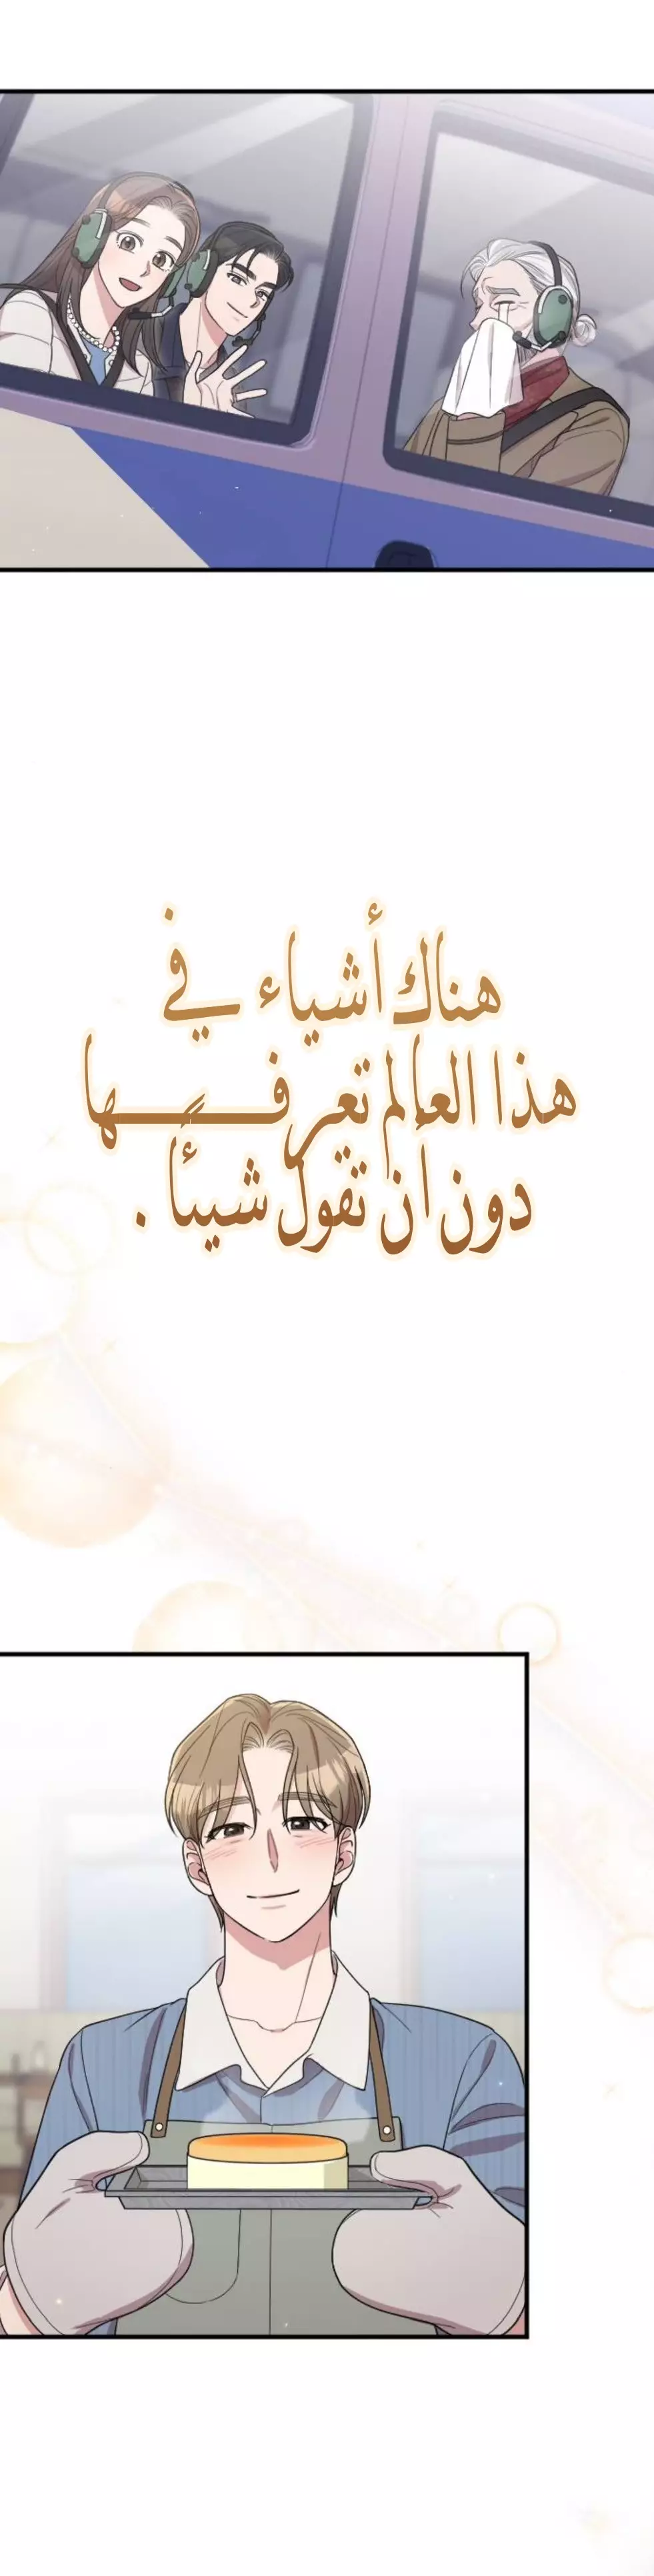 هناك أشياء في
هذا العالم تعرفها
دون أن تقول شيئًا .